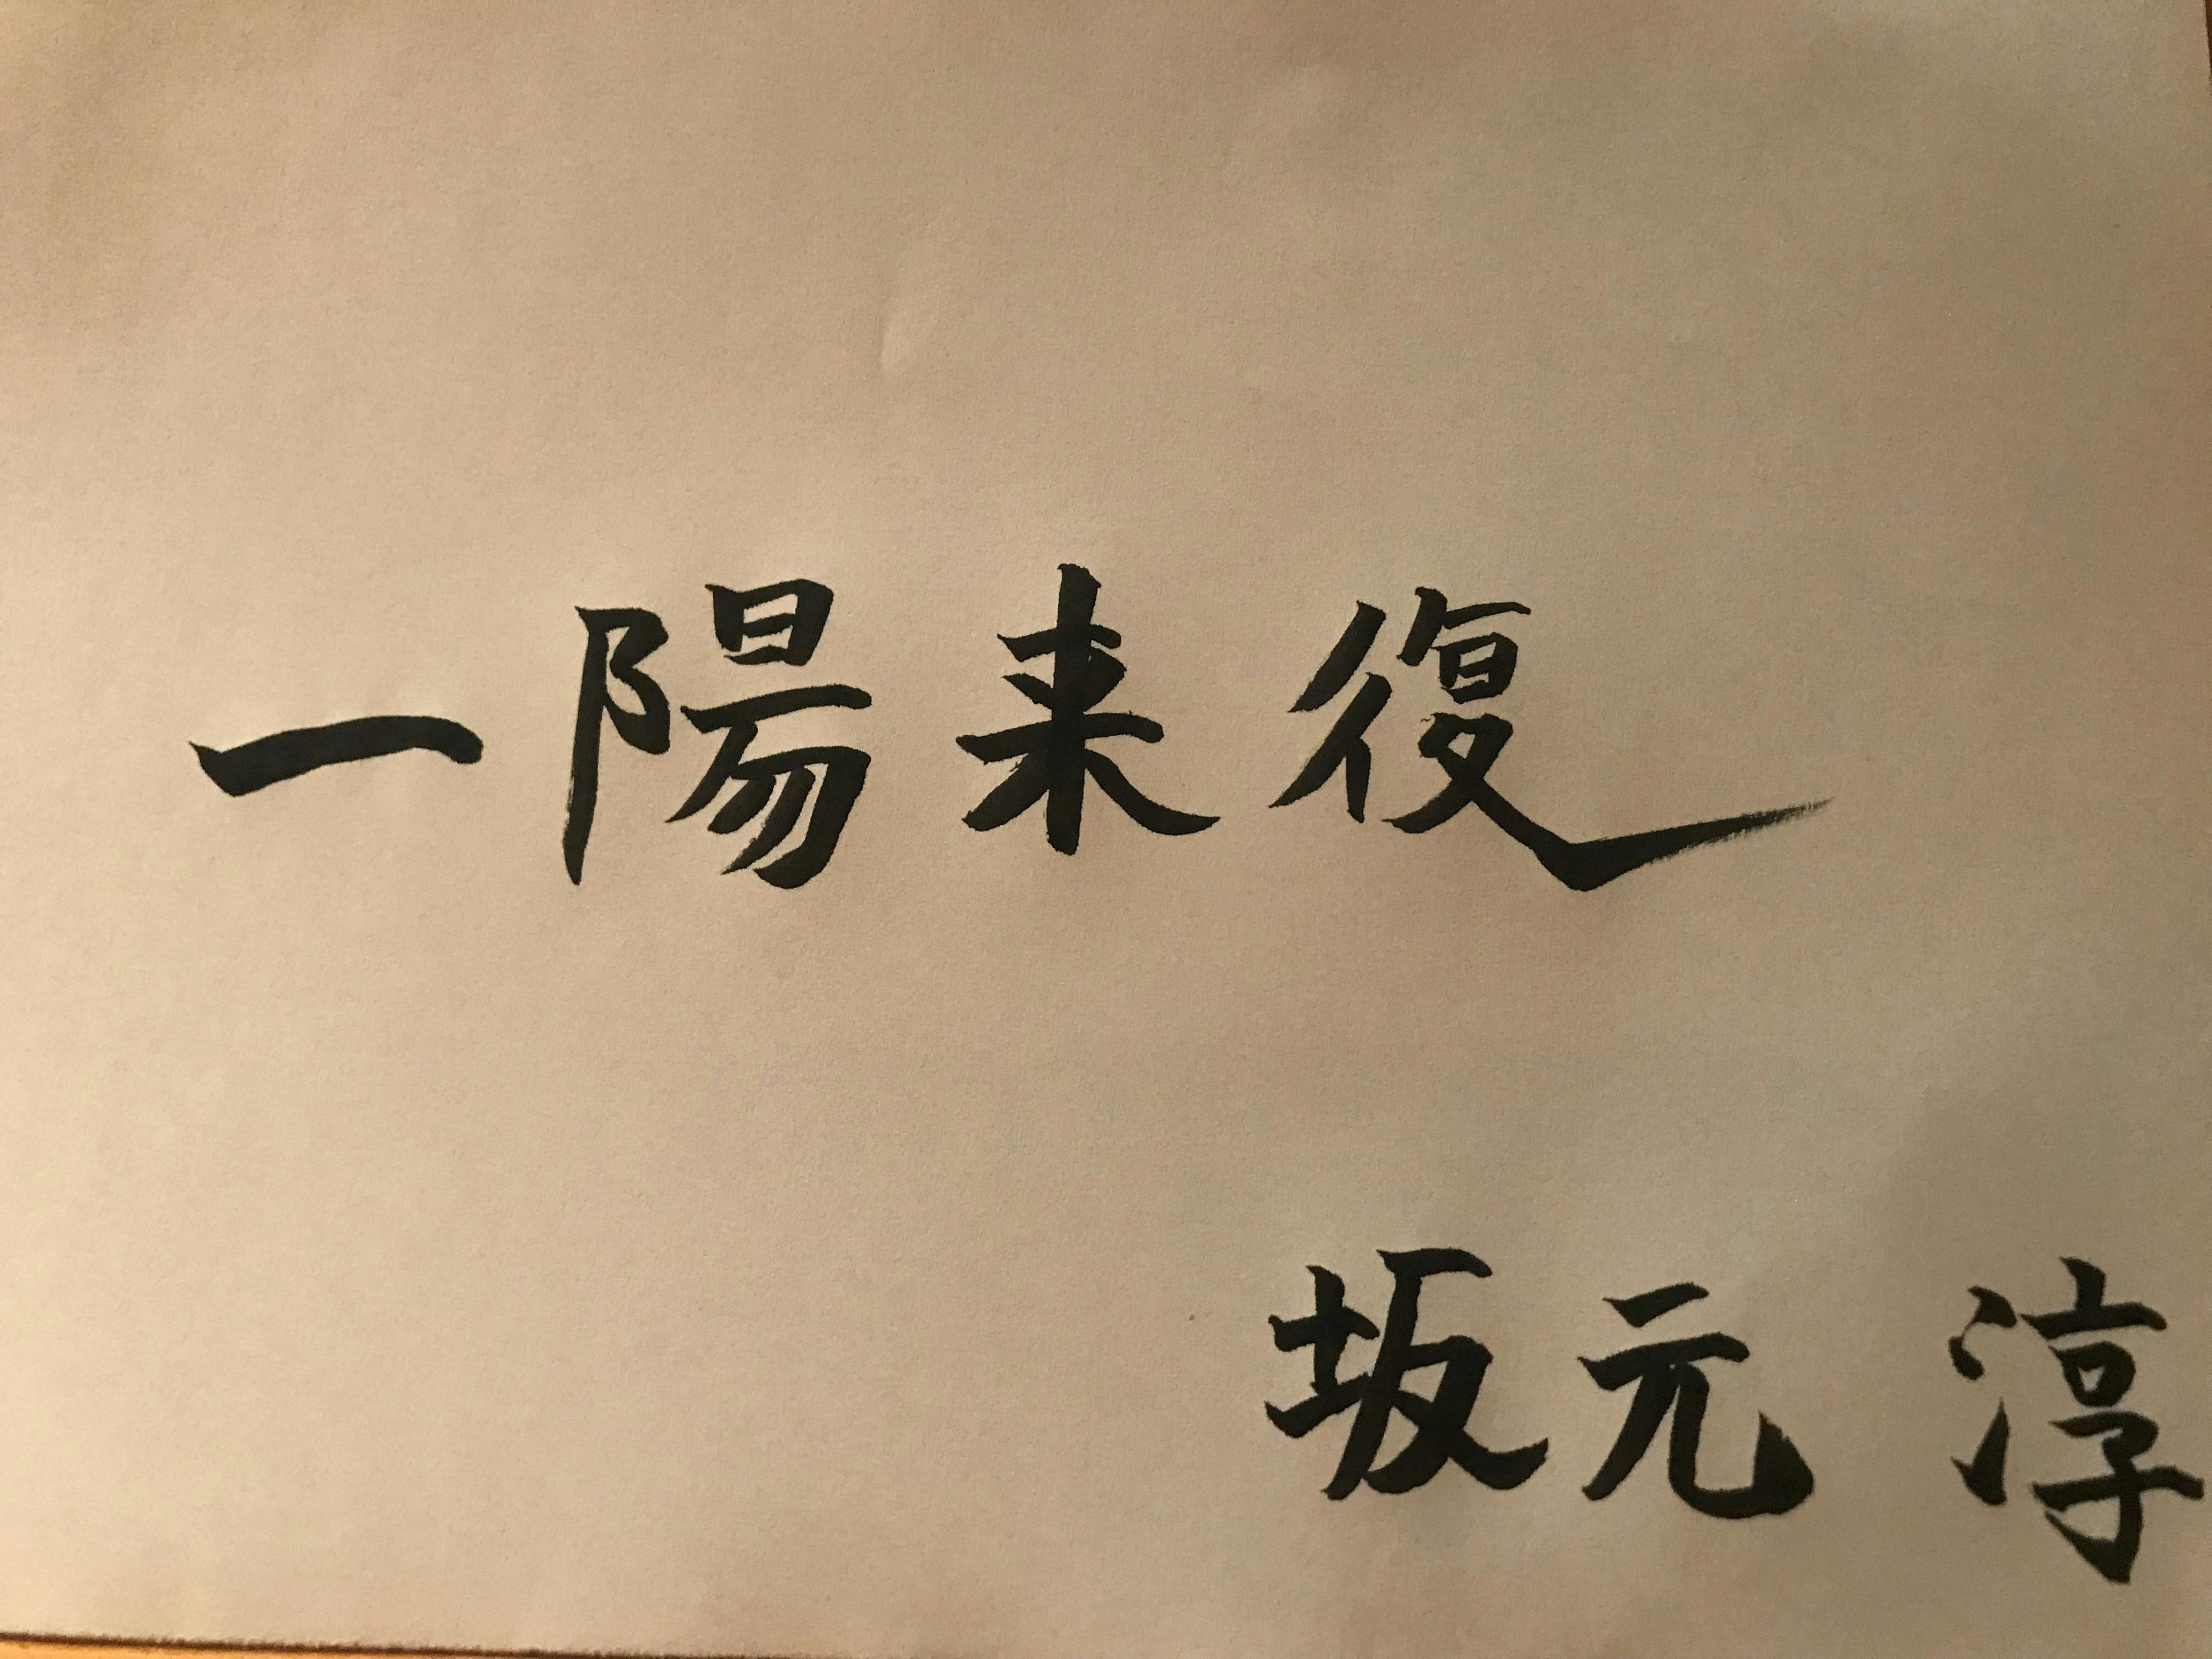 一陽来復
坂元 淳